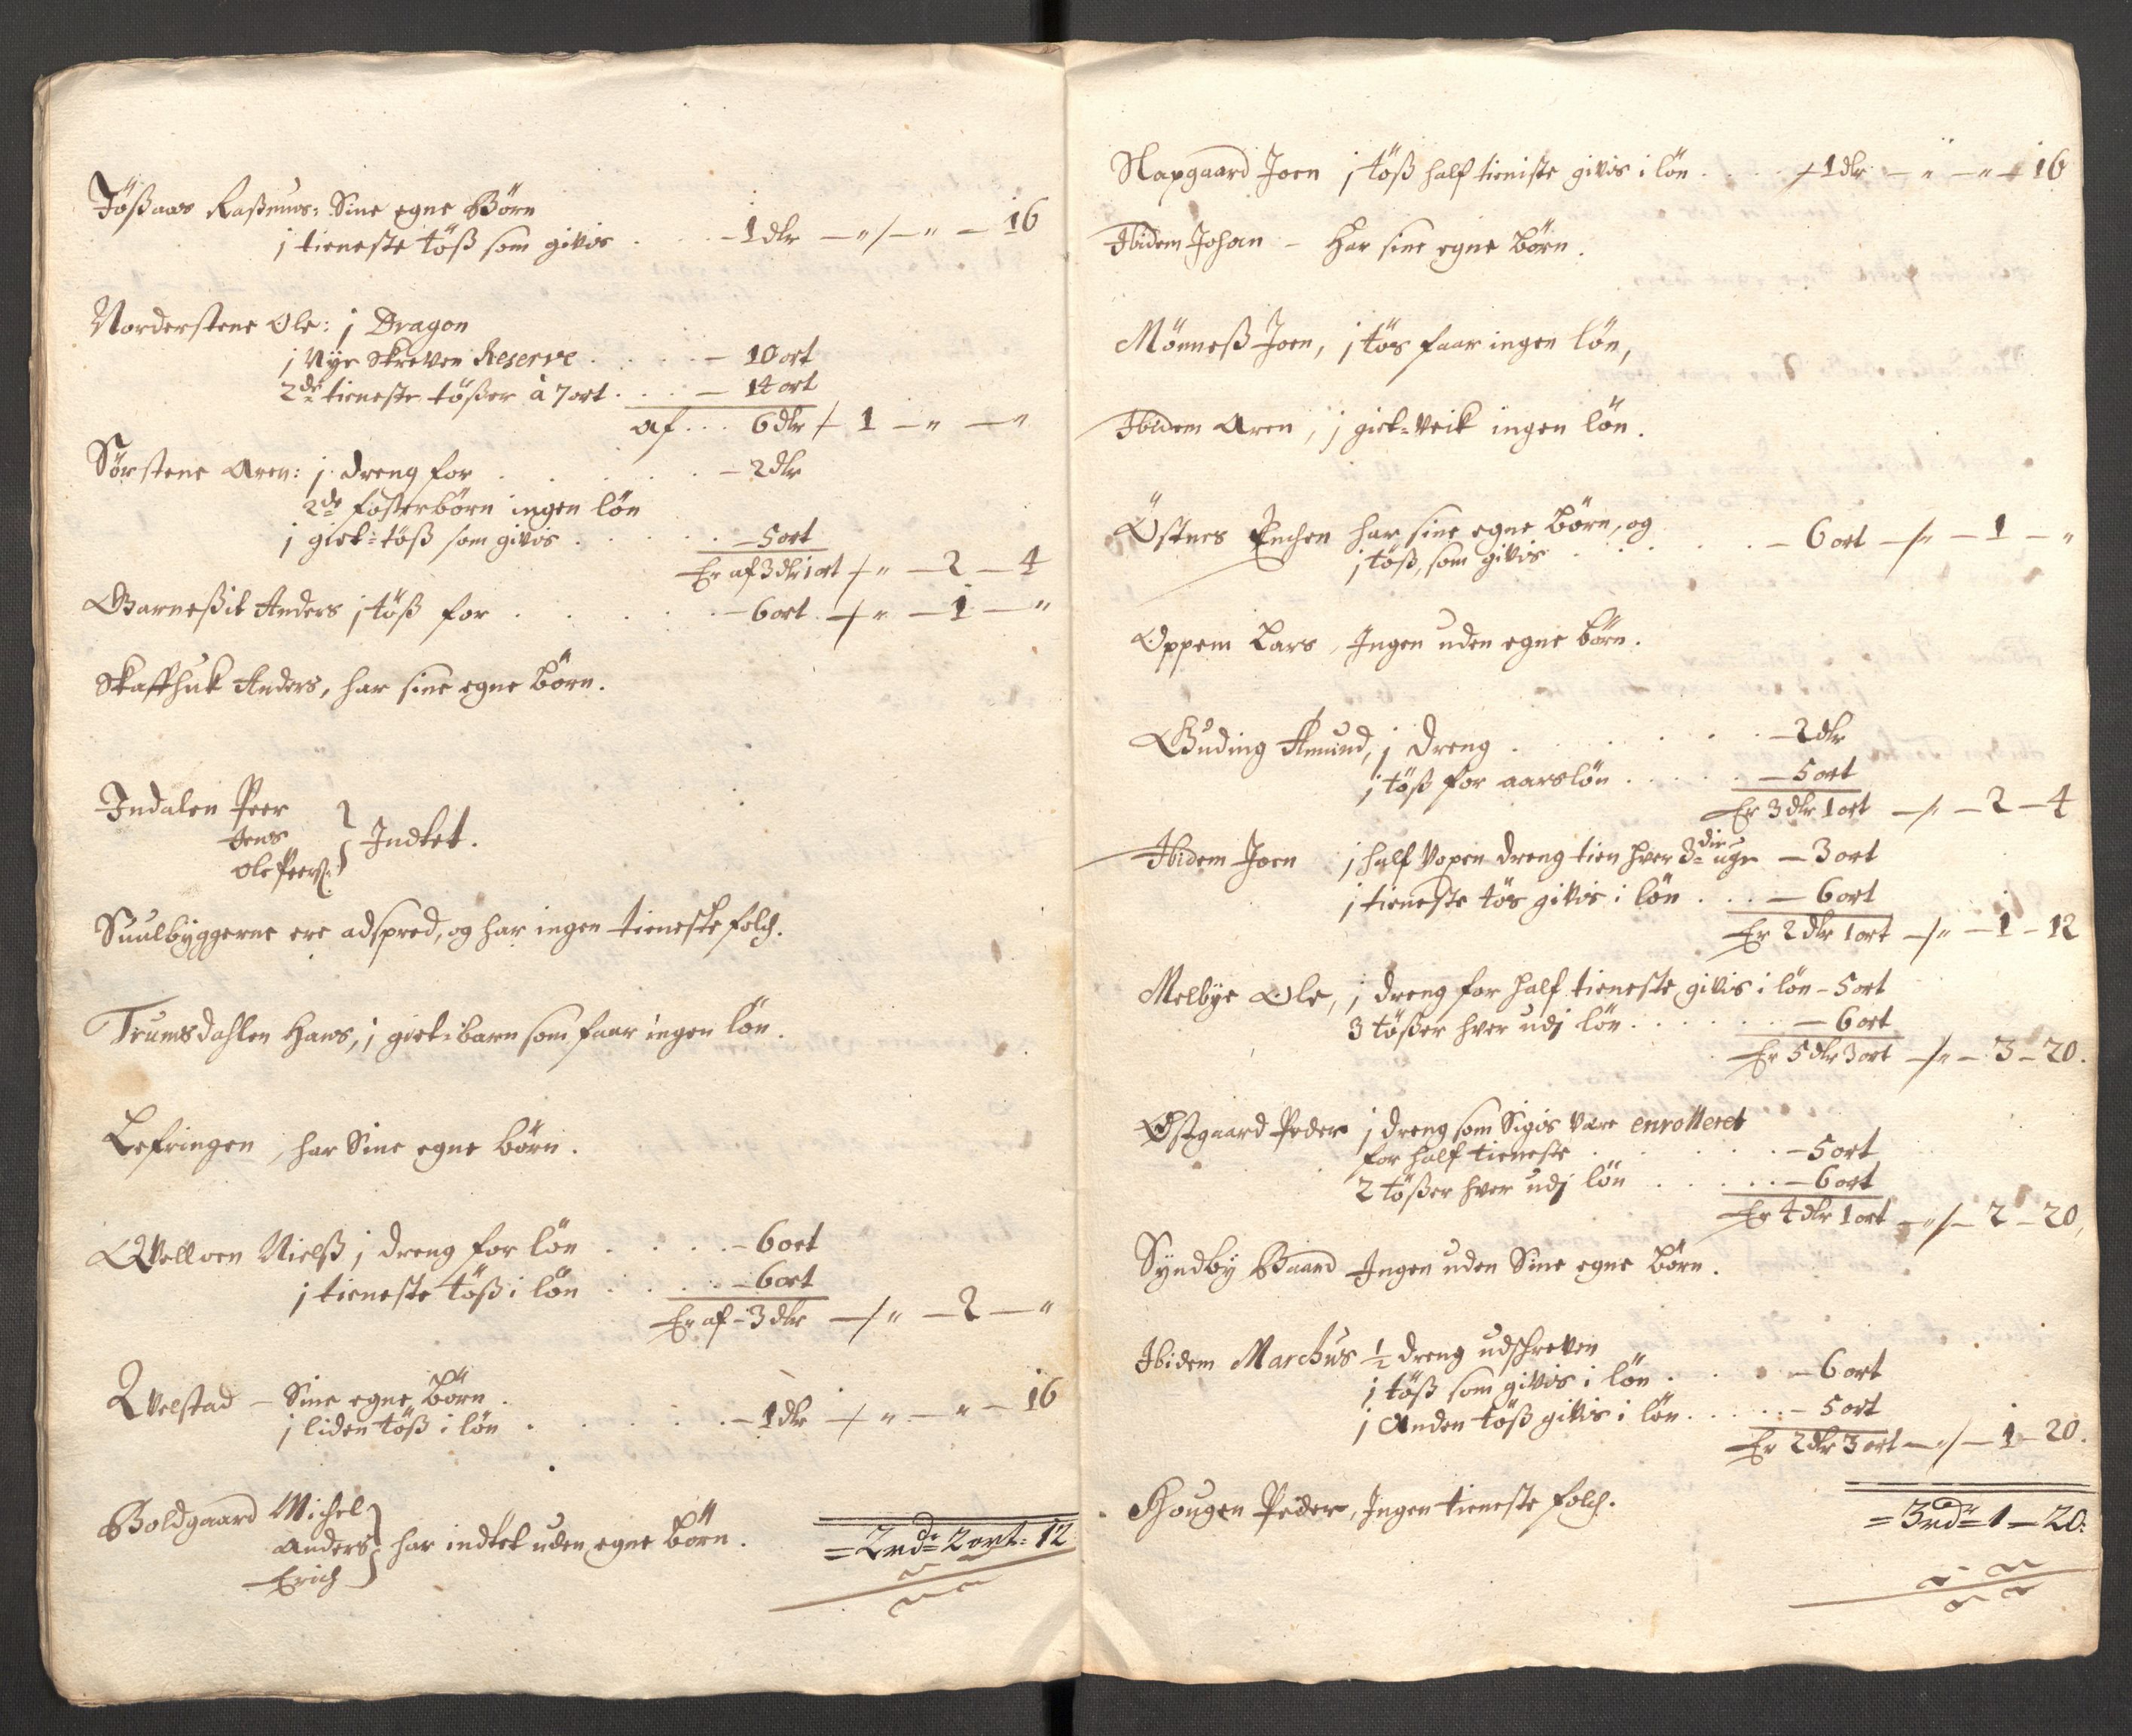 Jößaas Raßmus: Sine egne Börn
j tieneste töß som givis . . . – 1 dlr – " / – " – 16
Norderstene Ole: j Dragon
j Nye Skreven Reserve . . . . – 10 ort
2de tieneste tößer à 7 ort . . . – 14 ort
af . . . 6 dlr / 1 – " – "
Sörstene Aren: j dreng for . . . . – 2 dlr
2de fosterbörn ingen lön
j giet=töß som givis . . . . – 5 ort
Er af 3 dlr 1 ort / " – 2 – 4
Barneßit Anders j töß for . . . . – 6 ort / " – 1 – "
Skaffhuk Anders, har sine egne Börn.
Indalen Peer
Jens } Indtet.
Ole Peers:
Suulbyggerne ere adspred, og har ingen tieneste folch.
Trumsdahlen Hans, j giet=barn som faar ingen lön.
Lefringen, har Sine egne börn.
Qvelloen Nielß j dreng for lön . . . . – 6 ort
j tieneste töß i lön . . . . – 6 ort
Er af – 3 dlr – / " – 2 – "
Qvelstad – Sine egne Börn.
j liden töß i lön . . . . . – 1 dlr – / " – " – 16
Boldgaard Michel
Anders } har indtet uden egne Börn.
Erich
= 2 rdr 2 ort: 12
Napgaard Joen j töß half tieniste givis i lön . . . . / 1 dlr – " – " / 16
Ibidem Johan – Har sine egne börn.
Mönneß Joen, j tös faar ingen lön,
Ibidem Aren, j giet=veik ingen lön.
Östnes Enchen har sine egne Börn, og
j töß, som givis . . . . – 6 ort – / " – 1 – "
Oppem Lars, Ingen uden egne börn.
Guding Amund, j dreng . . . . . – 2 dlr
j töß for aarslön . . . . – 5 ort
Er 3 dlr 1 ort – / " – 2 – 4
Ibidem Joen j half Voxen dreng tien hver 3die uge – 3 ort
j tieneste tös givis i lön . . . – 6 ort
Er 2 dlr 1 ort – / " – 1 – 12
Melbye Ole, j dreng for half tieneste givis i lön – 5 ort
3 tößer hver udj lön . . . . . – 6 ort
Er 5 dlr 3 ort – / " – 3 – 20.
Östgaard Peder j dreng som Sigis være enrolleret
for half tieneste . . . . . – 5 ort
2 tößer hver udj lön . . . . . – 6 ort
Er 4 dlr 1 ort – " / – 2 – 20,
Syndby Baard Ingen uden Sine egne Börn.
Ibidem Marchus ½ dreng udschreven
j töß som givis i lön . . . – 6 ort
j Anden töß givis i lön . . . . . – 5 ort
Er 2 dlr 3 ort – " / – 1 – 20.
Hougen Peder, Ingen tieneste folch.
= 3 rdr 1 – 20: